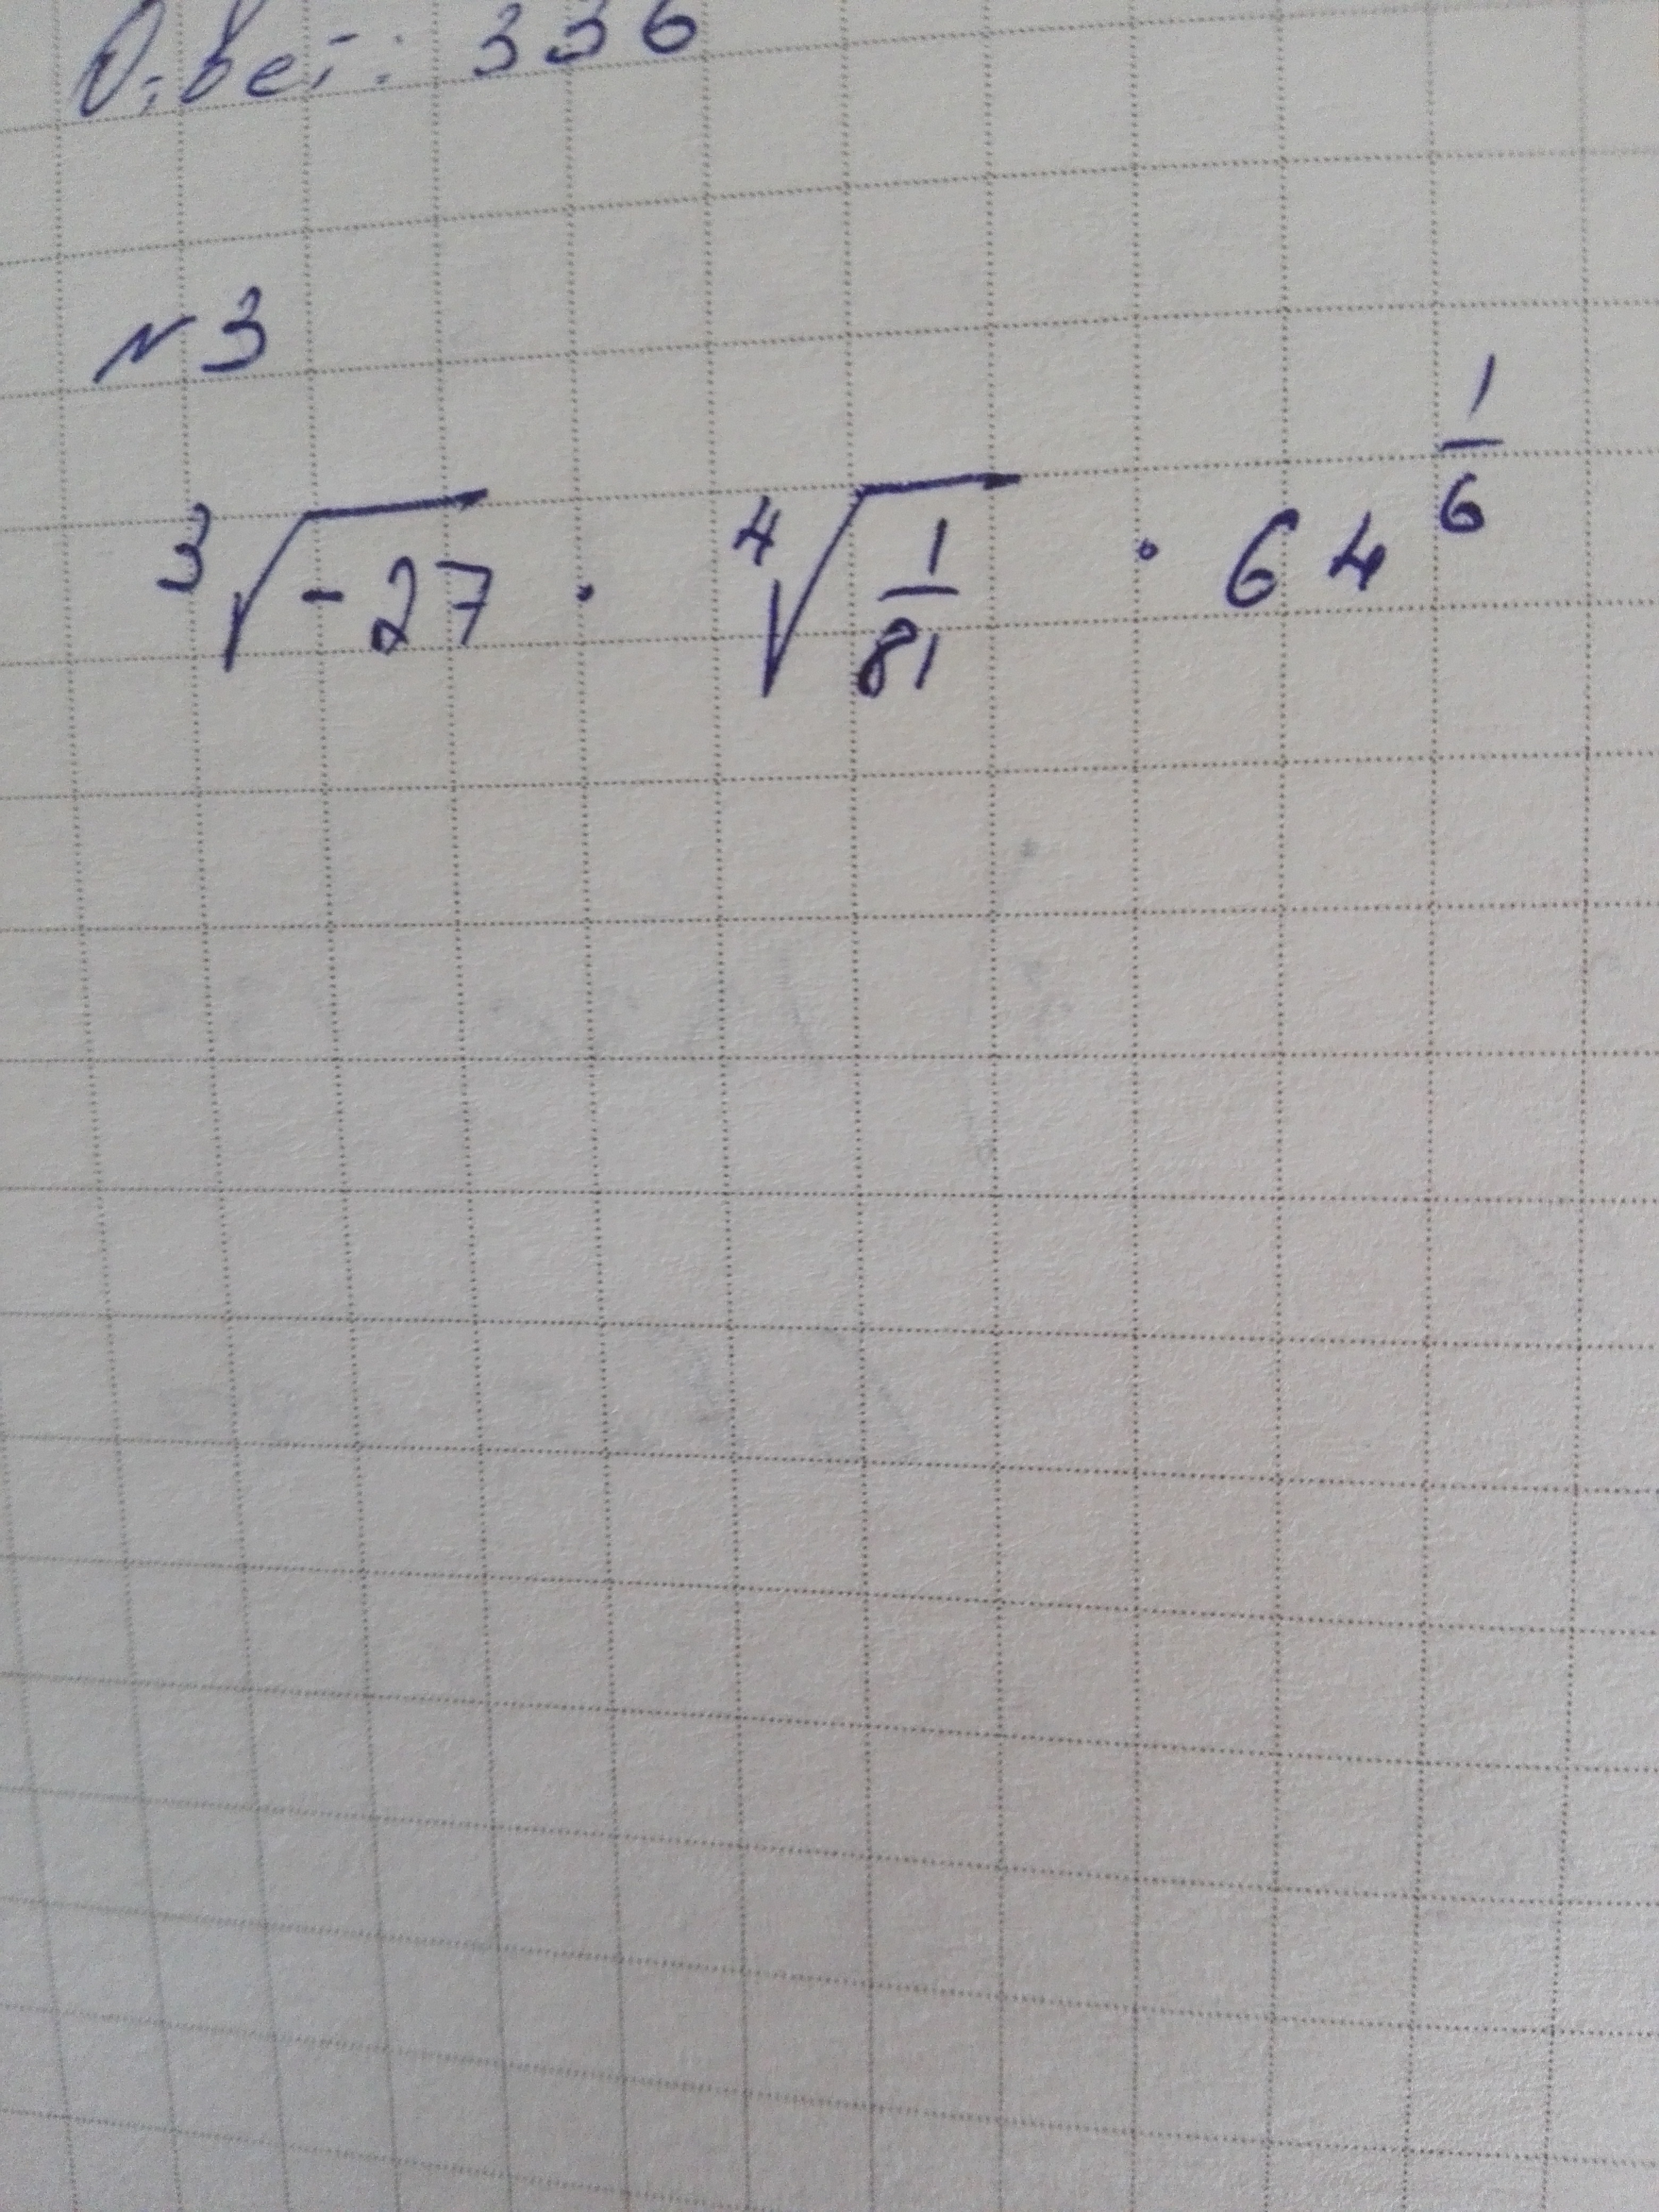 Ответ: 336
N 3
∛(-27) · ∜(1/81) · 64^(1/6)